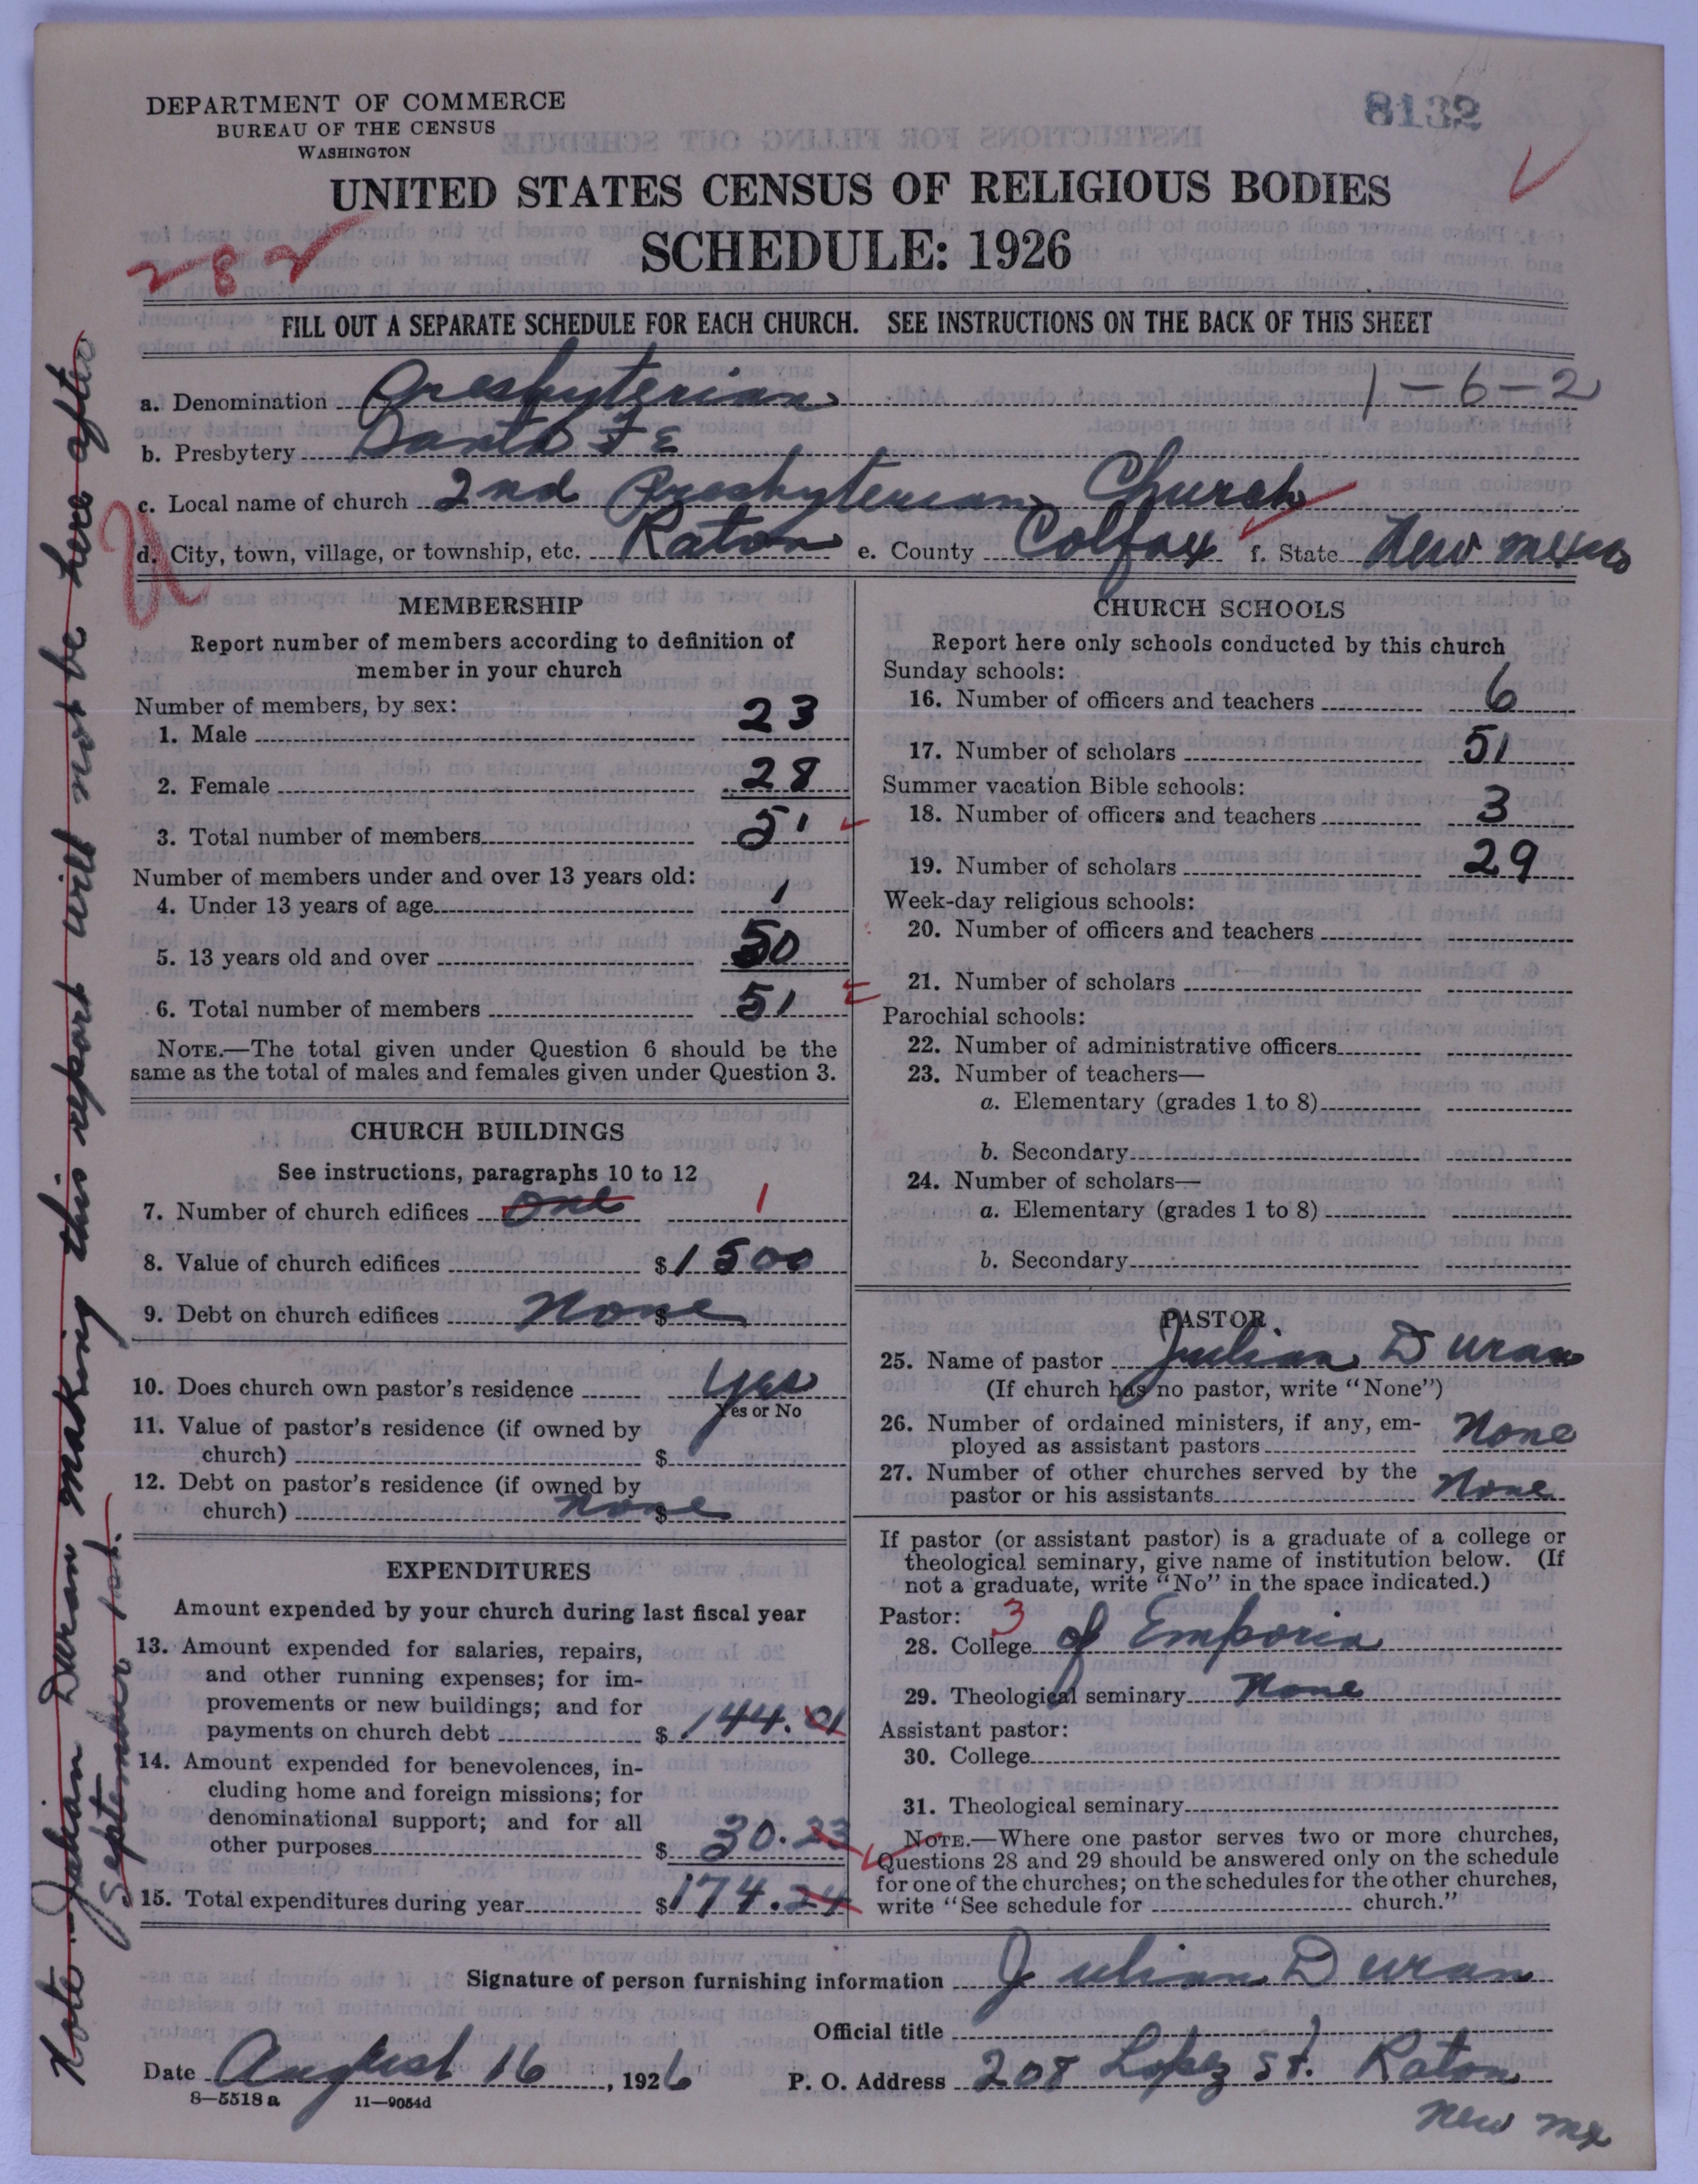 DEPARTMENT OF COMMERCE
BUREAU OF THE CENSUS
WASHINGTON
8132
UNITED STATES CENSUS OF RELIGIOUS BODIES
SCHEDULE: 1926
282
FILL OUT A SEPARATE SCHEDULE FOR EACH CHURCH. SEE INSTRUCTIONS ON THE BACK OF THIS SHEET
a. Denomination Presbyterian 1-6-2
b. Presbytery Santa Fe
c. Local name of church 2nd Presbyterian Church
d. City, town, village, or township, etc. Raton e. County Colfax f. State New Mexico
MEMBERSHIP
Report number of members according to definition of
member in your church
Number of members, by sex:
1. Male 23
2. Female 28
3. Total number of members 51
Number of members under and over 13 years old:
4. Under 13 years of age 1
5. 13 years old and over 50
6. Total number of members 51
NOTE.—The total given under Question 6 should be the
same as the total of males and females given under Question 3.
CHURCH BUILDINGS
See instructions, paragraphs 10 to 12
7. Number of church edifices one 1
8. Value of church edifices $1500
9. Debt on church edifices None $
10. Does church own pastor's residence yes
Yes or No
11. Value of pastor's residence (if owned by
church) $
12. Debt on pastor's residence (if owned by
church) none $
EXPENDITURES
Amount expended by your church during last fiscal year
13. Amount expended for salaries, repairs,
and other running expenses; for im-
provements or new buildings; and for
payments on church debt $144.01
14. Amount expended for benevolences, in-
cluding home and foreign missions; for
denominational support; and for all
other purposes $30.23
15. Total expenditures during year $174.24
CHURCH SCHOOLS
Report here only schools conducted by this church
Sunday schools:
16. Number of officers and teachers 6
17. Number of scholars 51
Summer vacation Bible schools:
18. Number of officers and teachers 3
19. Number of scholars 29
Week-day religious schools:
20. Number of officers and teachers
21. Number of scholars
Parochial schools:
22. Number of administrative officers
23. Number of teachers—
a. Elementary (grades 1 to 8)
b. Secondary
24. Number of scholars—
a. Elementary (grades 1 to 8)
b. Secondary
PASTOR
25. Name of pastor Julian Duran
(If church has no pastor, write "None")
26. Number of ordained ministers, if any, em-
ployed as assistant pastors None
27. Number of other churches served by the
pastor or his assistants None
If pastor (or assistant pastor) is a graduate of a college or
theological seminary, give name of institution below. (If
not a graduate, write "No" in the space indicated.)
Pastor: 3
28. College of Emporia
29. Theological seminary None
Assistant pastor:
30. College
31. Theological seminary
NOTE.—Where one pastor serves two or more churches,
Questions 28 and 29 should be answered only on the schedule
for one of the churches; on the schedules for the other churches,
write "See schedule for church."
Signature of person furnishing information Julian Duran
Official title
Date August 16, 1926 P. O. Address 208 Lopez St. Raton
New Mex
8—5518 a 11—9054d
Note - Julian Duran making this report will not be here after
September 1st.